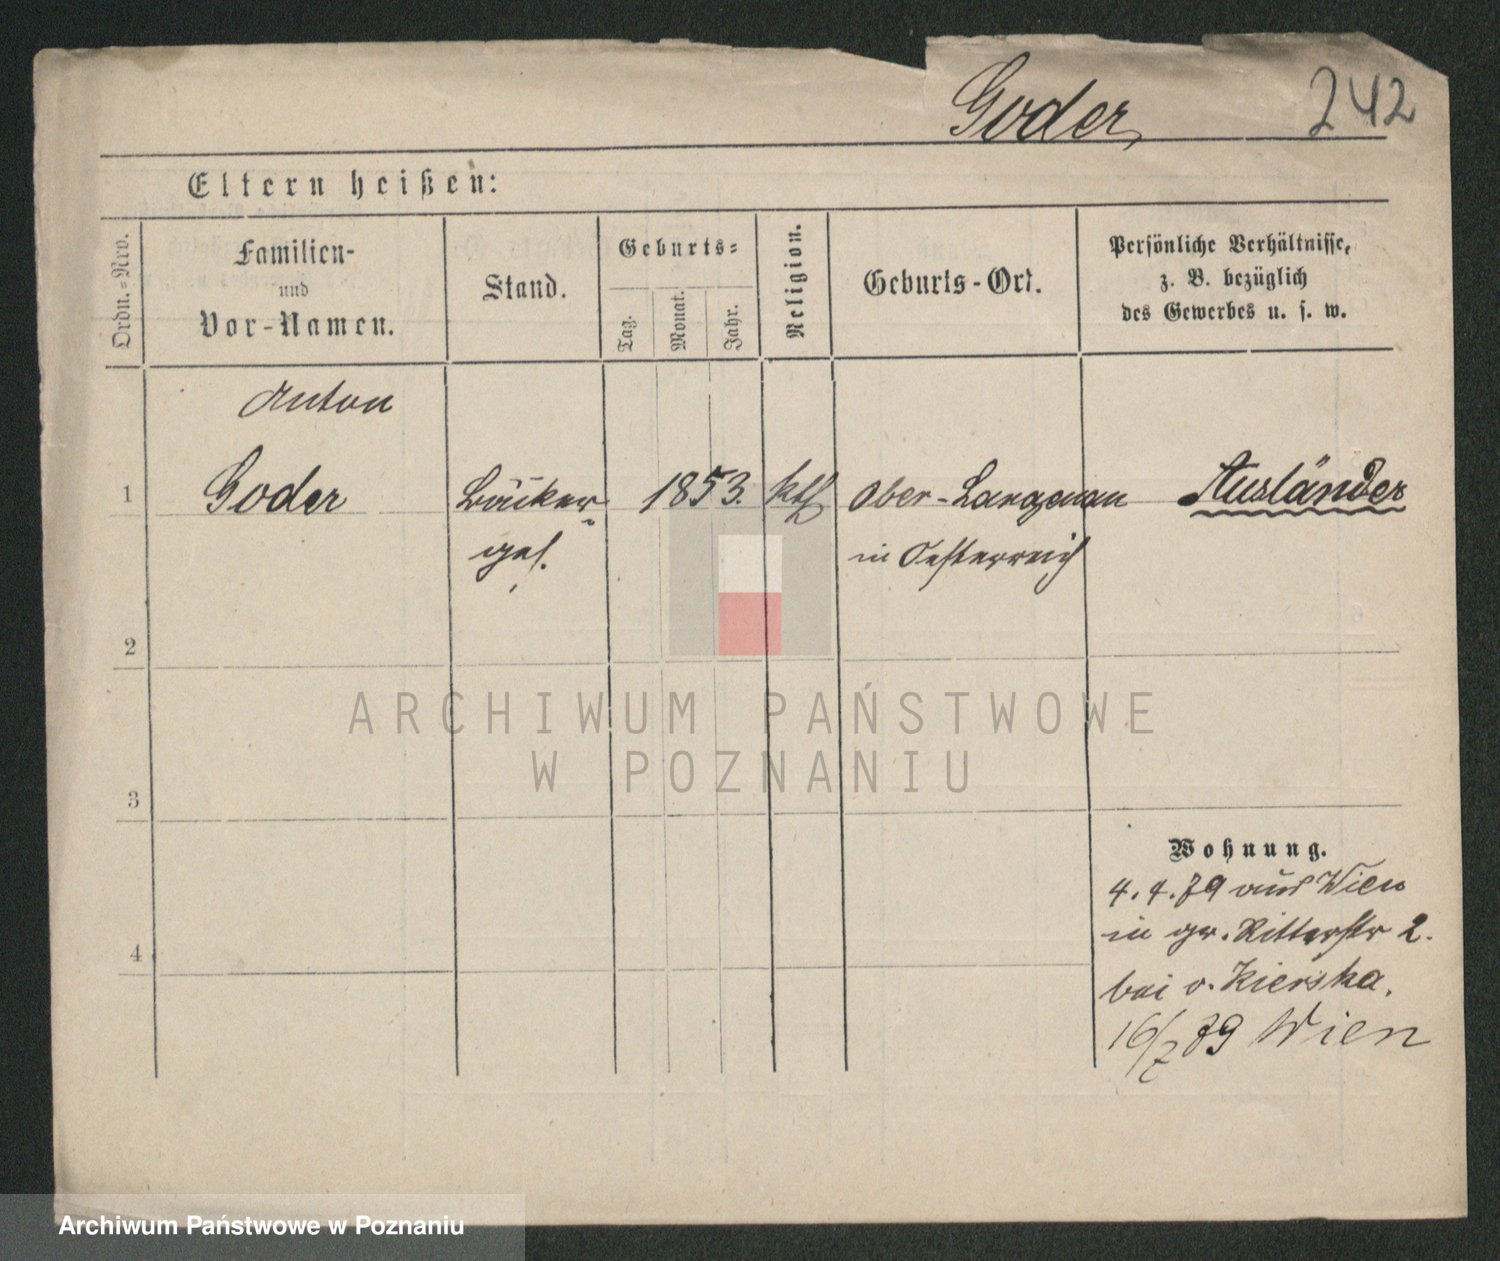 Goder, 242
Eltern heißen:
Ordn.-Nro.
Familien-
und
Vor-Namen.
Stand.
Geburts-
Tag.
Monat.
Jahr.
Religion.
Geburts-Ort.
Persönliche Verhältnisse,
z. B. bezüglich
des Gewerbes u. s. w.
Anton
1 Goder Bäcker- 1853. kth Ober-Langenau Ausländer
ges. in Oesterreich
2
3
4
Wohnung.
4.4.79 aus Wien
in gr. Ritterstr 2.
bei v. Kierska.
16/7 79 Wien
ARCHIWUM PAŃSTWOWE
W POZNANIU
Archiwum Państwowe w Poznaniu